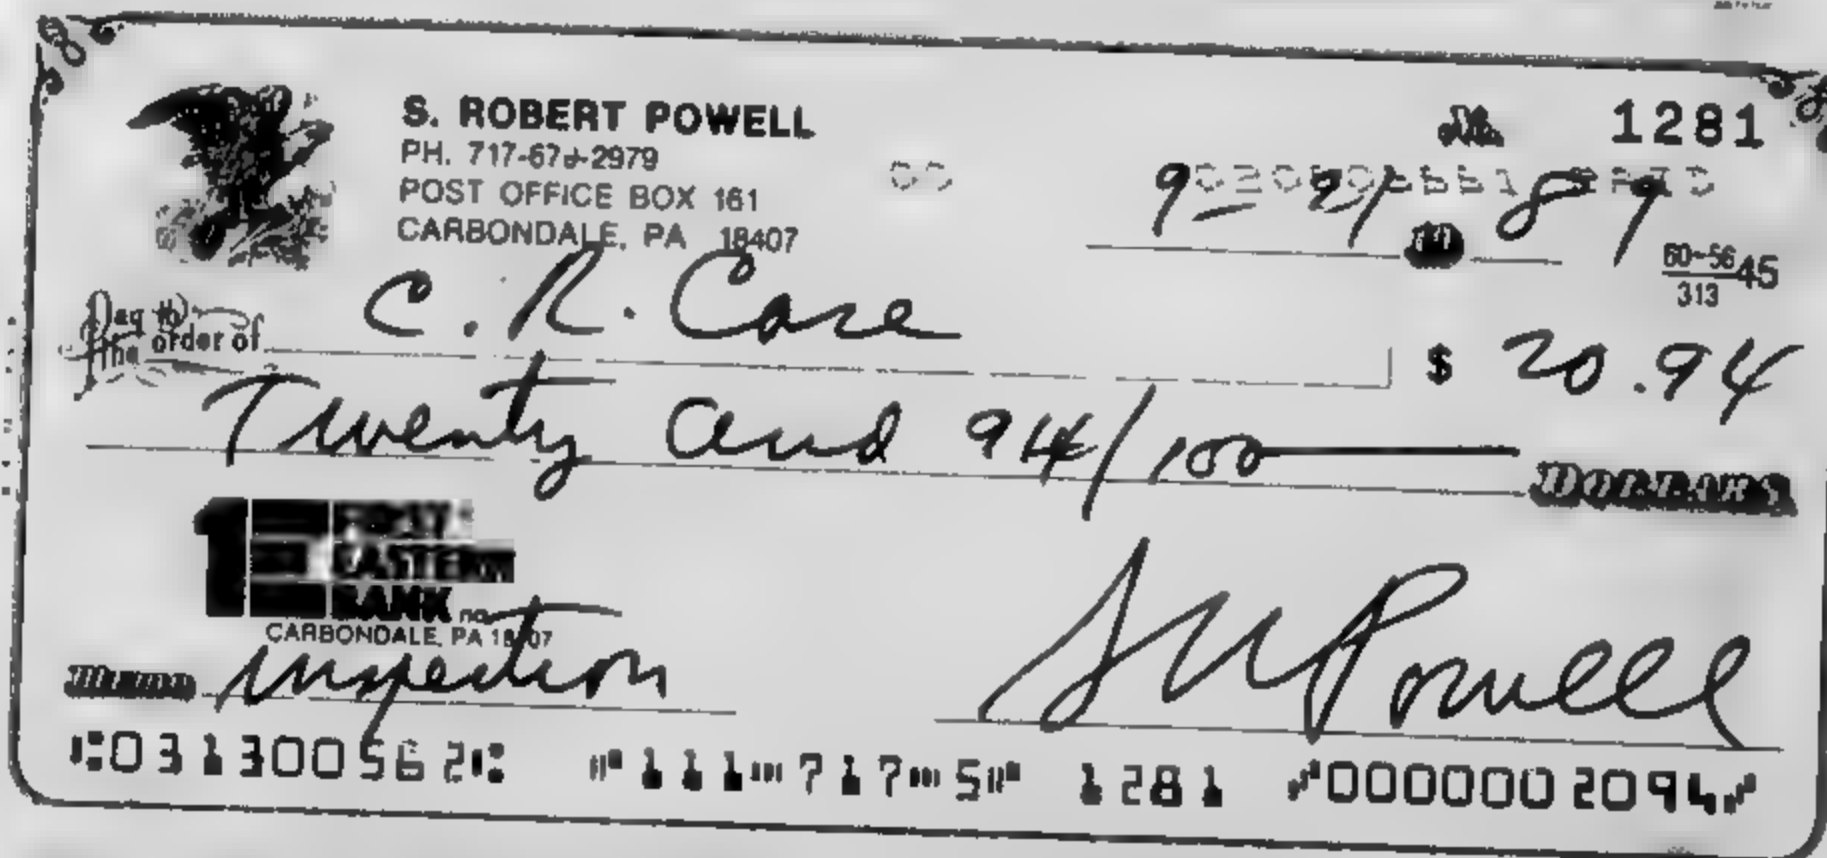 S. ROBERT POWELL
No. 1281
PH. 717-2979
POST OFFICE BOX 161
CARBONDALE, PA 18407
9-21 89
60-56 45
313
Pay to
the order of C. R. Case
$ 20.94
Twenty and 94/100
DOLLARS
1 FIRST
EASTERN
BANK na
CARBONDALE, PA 18407
Memo Inspection
S R Powell
⑆031300562⑆ ⑈111⑉717⑉5⑈ 1281 ⑈0000002094⑈